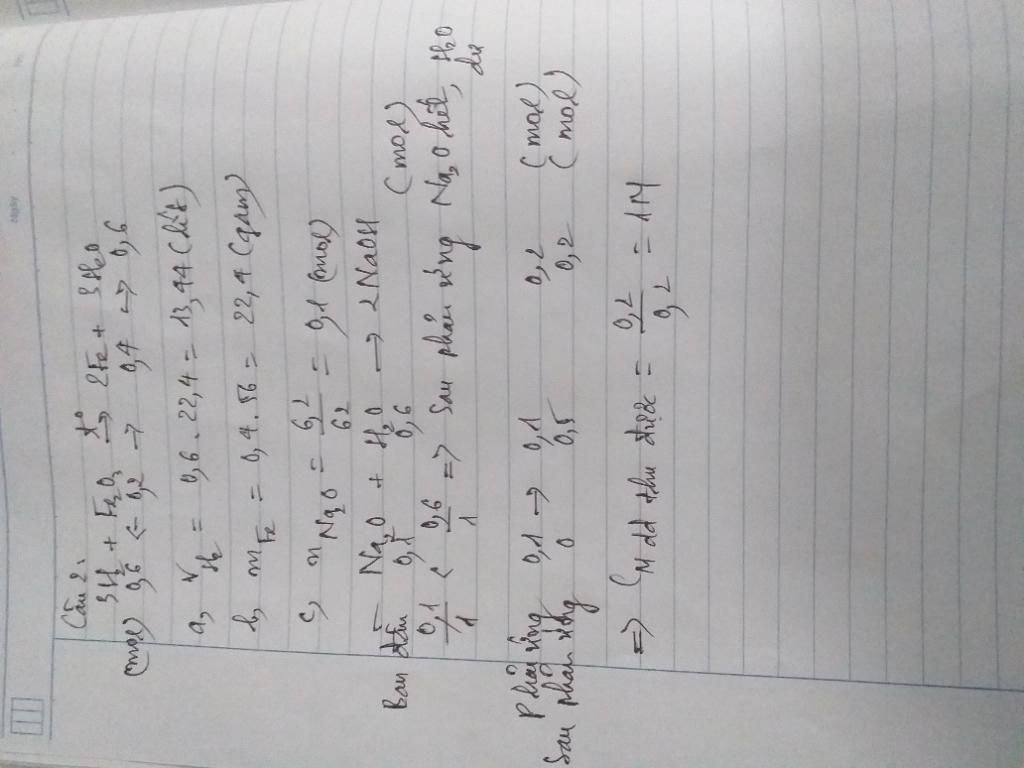 Câu 2:
3H2 + Fe2O3 t° → 2Fe + 3H2O
(mol) 0,6 ← 0,2 → 0,4 → 0,6
a, VH2 = 0,6 . 22,4 = 13,44 (lít)
b, mFe = 0,4 . 56 = 22,4 (gam)
c, nNa2O = 6,2/62 = 0,1 (mol)
Na2O + H2O → 2NaOH
Ban đầu 0,1 0,6 (mol)
0,1/1 < 0,6/1 => Sau phản ứng Na2O hết, H2O dư
Phản ứng 0,1 → 0,1 0,2 (mol)
Sau phản ứng 0 0,5 0,2 (mol)
=> CM dd thu được = 0,2/0,2 = 1M